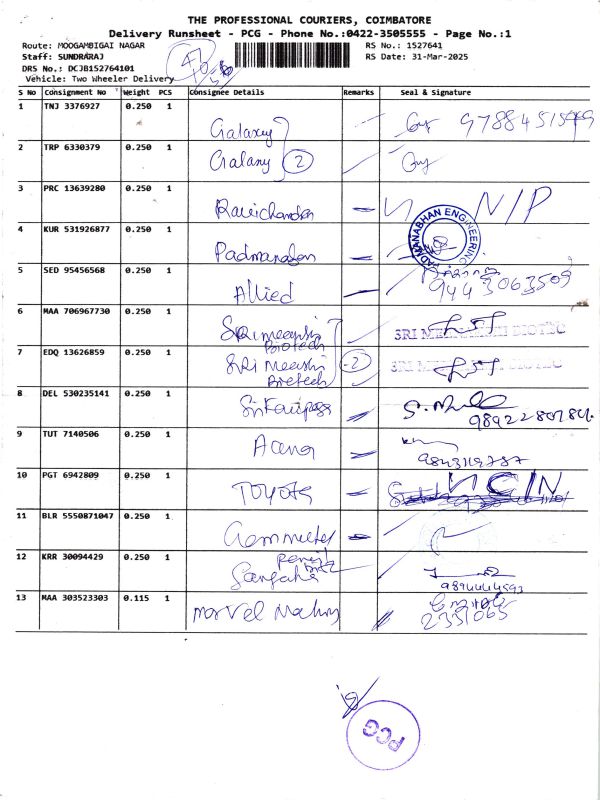 THE PROFESSIONAL COURIERS, COIMBATORE
Delivery Runsheet - PCG - Phone No.:0422-3505555 - Page No.:1
Route: MOOGAMBIGAI NAGAR RS No.: 1527641
Staff: SUNDRARAJ RS Date: 31-Mar-2025
DRS No.: DCJB152764101
Vehicle: Two Wheeler Delivery
S No Consignment No Weight PCS Consignee Details Remarks Seal & Signature
1 TNJ 3376927 0.250 1 Galaxey
2 TRP 6330379 0.250 1 Galaxy 2
3 PRC 13639280 0.250 1 Ravichandran N/P
4 KUR 531926877 0.250 1 Padmanaban PADMANABHAN ENGINEERING
5 SED 95456568 0.250 1 Allied 9443063509
6 MAA 706967730 0.250 1 Sri meenshi Biotech
7 EDQ 13626859 0.250 1 Sri meenshi Bioetech 2
8 DEL 530235141 0.250 1
9 TUT 7140506 0.250 1
10 PGT 6942809 0.250 1 TOYOTA
11 BLR 5550871047 0.250 1
12 KRR 30094429 0.250 1 9894444593
13 MAA 303523303 0.115 1 Marvel 2331065
PCG